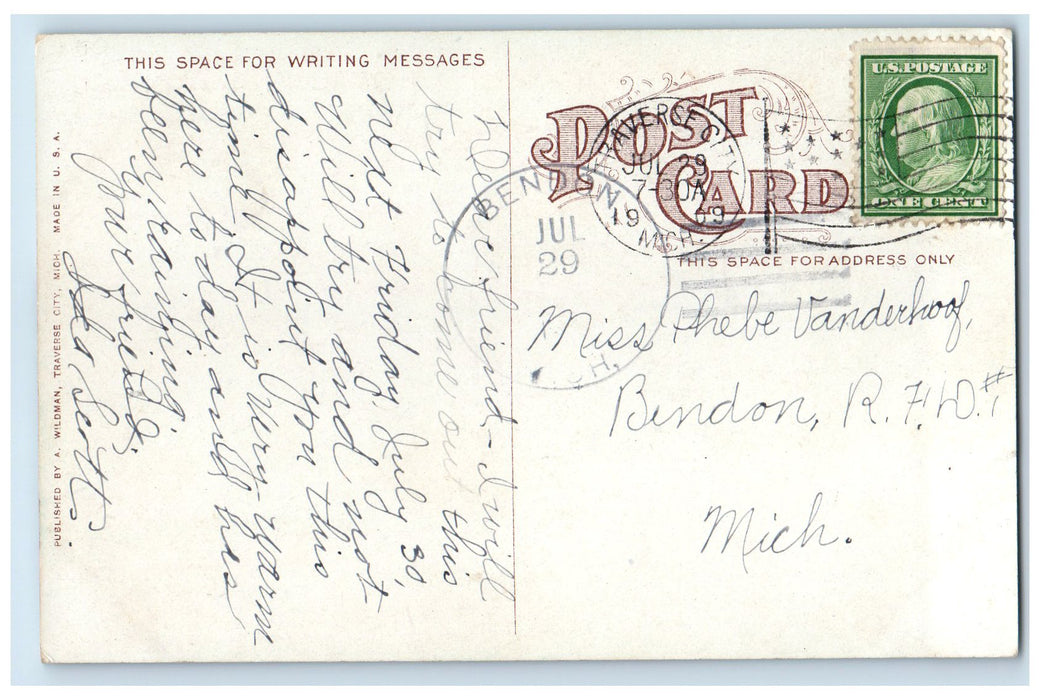 THIS SPACE FOR WRITING MESSAGES
Dear friend - I will
try to come out this
next Friday July 30,
Will try and not
disappoint you this
time. It is very warm
here today and has
been raining.
Your friend,
Ida Scott.
PUBLISHED BY A. WILDMAN, TRAVERSE CITY, MICH. MADE IN U. S. A.
POST
CARD
TRAVERSE CITY
JUL 29
7-30A
1909
MICH.
BENDON
JUL
29
CH.
U.S. POSTAGE
ONE CENT
THIS SPACE FOR ADDRESS ONLY
Miss Phebe Vanderhoof,
Bendon, R.F.D. #1
Mich.